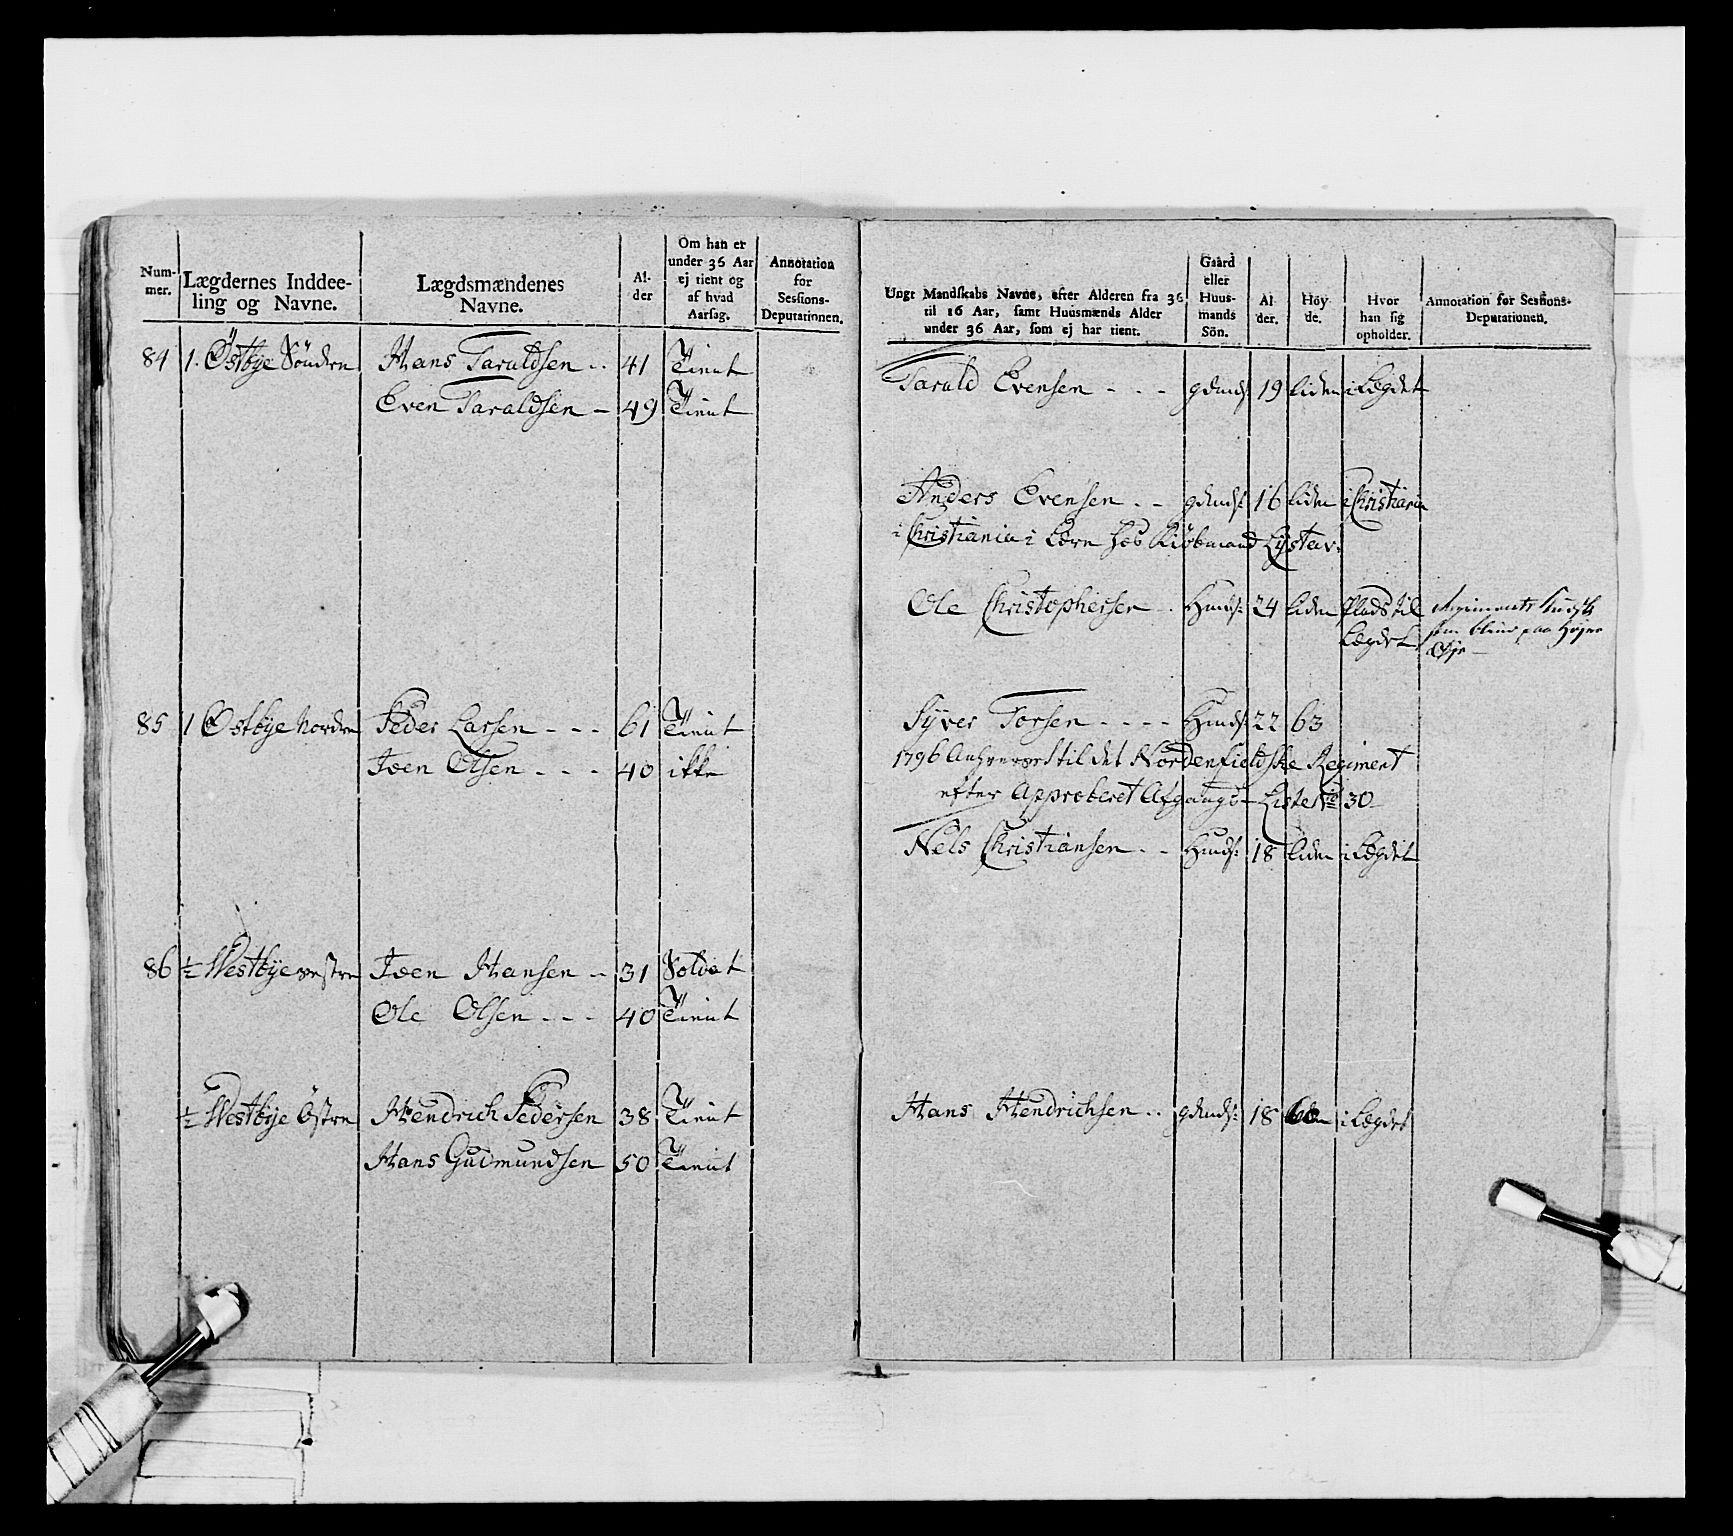 Num-
mer.
Lægdernes Inddee-
ling og Navne.
Lægdsmændenes
Navne.
Al-
der
Om han er
under 36 Aar
ej tient og
af hvad
Aarsag.
Annotation
for
Sessions-
Deputationen.
84 1. Östbye Söndre Hans Taraldsen 41 Tient
Even Taraldsen 49 Tient
85 1 Østbye Nordre Peder Larsen 61 Tient
Joen Olsen 40 ikke
86 ½ Westbye vestre Joen Hansen 31 Soldat
Ole Olsen 40 Tient
½ Westbye Östre Hendrich Pedersen 38 Tient
Hans Gudmundsen 50 Tient
Ungt Mandskabs Navne, efter Alderen fra 36
til 16 Aar, samt Huusmænds Alder
under 36 Aar, som ej har tient.
Gaard
eller
Huus-
mands
Sön.
Al
der.
Höy
de.
Hvor
han sig
opholder.
Annotation for Sessions-
Deputationen.
Tarald Evensen gdmds 19 liden i Lægdet
Anders Evensen gdmds: 16 liden i Christiania
i Christiania i Lære hos Kiöbmand
Ole Christophersen Hmds: 24 liden Plads til
Lægdet
Regiments
paa Højre
Øje
Syver Torsen Hmds 22 63
1796 til det Nordenfieldske Regiment
efter Approberet Afgangs-Liste No 30
Nels Christiansen Hmds: 18 liden i Lægdet
Hans Hendrichsen gdmds: 18 i Lægdet